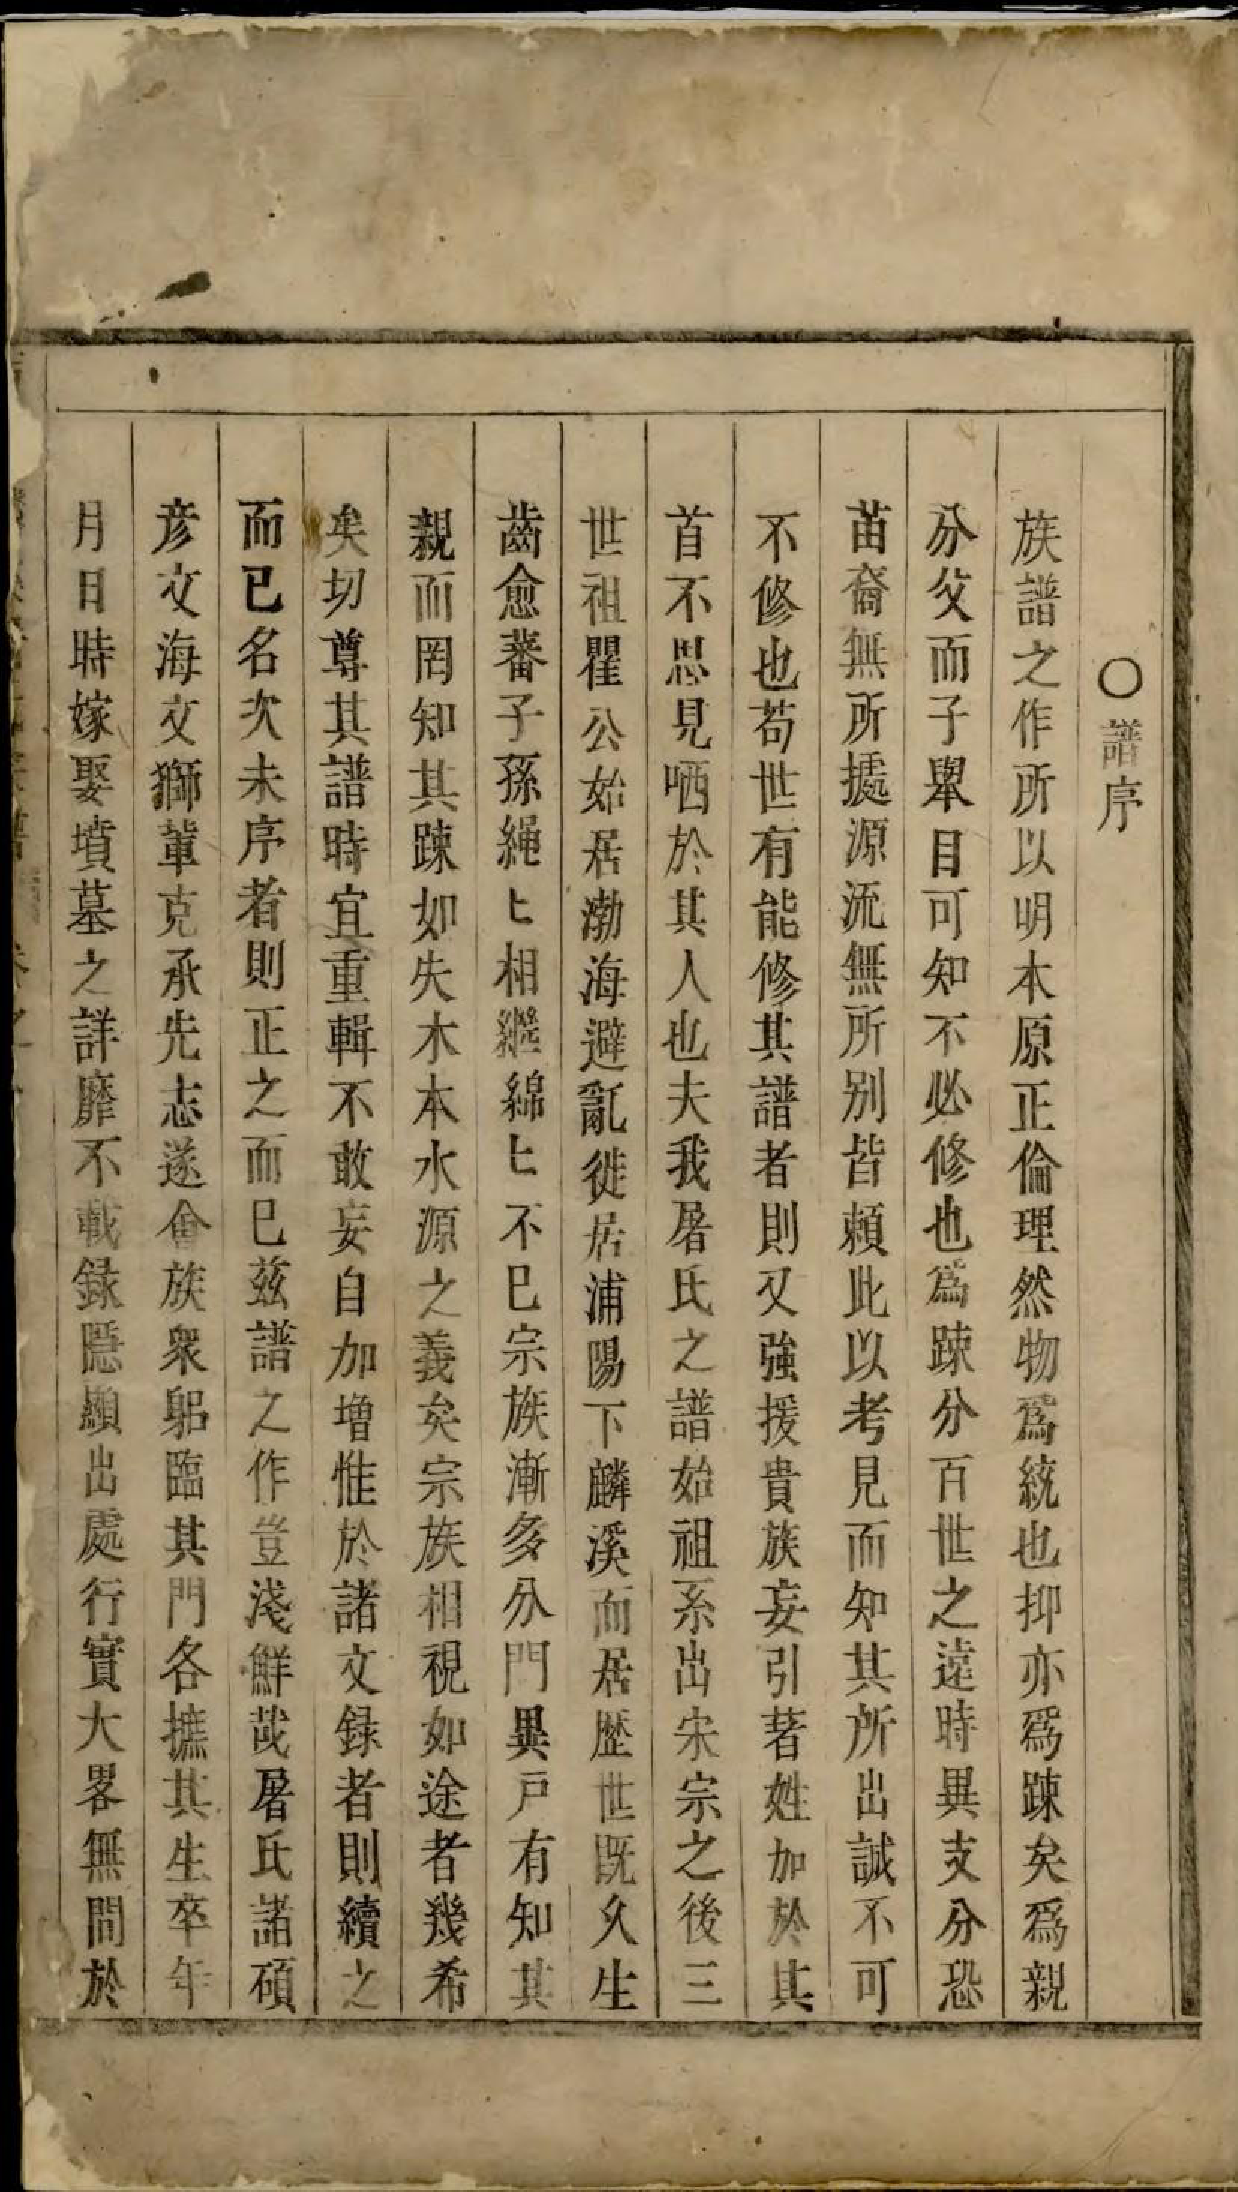 ○譜序
族譜之作所以明本原正倫理然物爲統也抑亦爲踈矣爲親
分父而子舉目可知不必修也爲踈分百世之遠時異支分恐
苗裔無所據源流無所别皆頼此以考見而知其所出誠不可
不修也苟世有能修其譜者則又強援貴族妄引著姓加於其
首不思見哂於其人也夫我屠氏之譜始祖系出宋宗之後三
世祖瞿公始居渤海避亂徙居浦陽下麟溪而居歴世既久生
齒愈蕃子孫繩匕相繼綿匕不巳宗族漸多分門異戸有知其
親而罔知其踈如失木本水源之義矣宗族相視如途者幾希
矣切尊其譜時宜重輯不敢妄自加增惟於諸文録者則續之
而已名次未序者則正之而巳兹譜之作豈淺鮮哉屠氏諸碩
彦文海文獅軰克承先志遂會族衆躬臨其門各摭其生卒年
月日時嫁娶墳墓之詳靡不載録隱顯出處行實大畧無間於